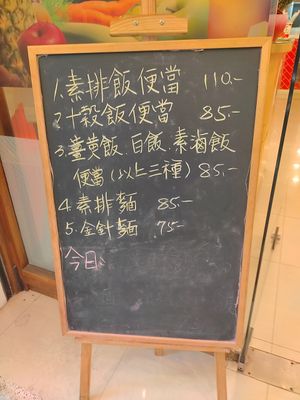 1.素排飯便當 110.-
2.十穀飯便當 85.-
3.薑黃飯.白飯.素滷飯
便當(以上三種)85.-
4.素排麵 85.-
5.金針麵 75.-
今日: